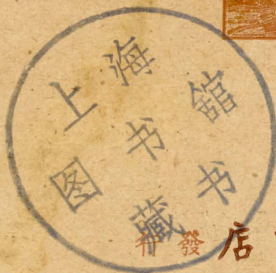 上海
图书舘
藏书
發店